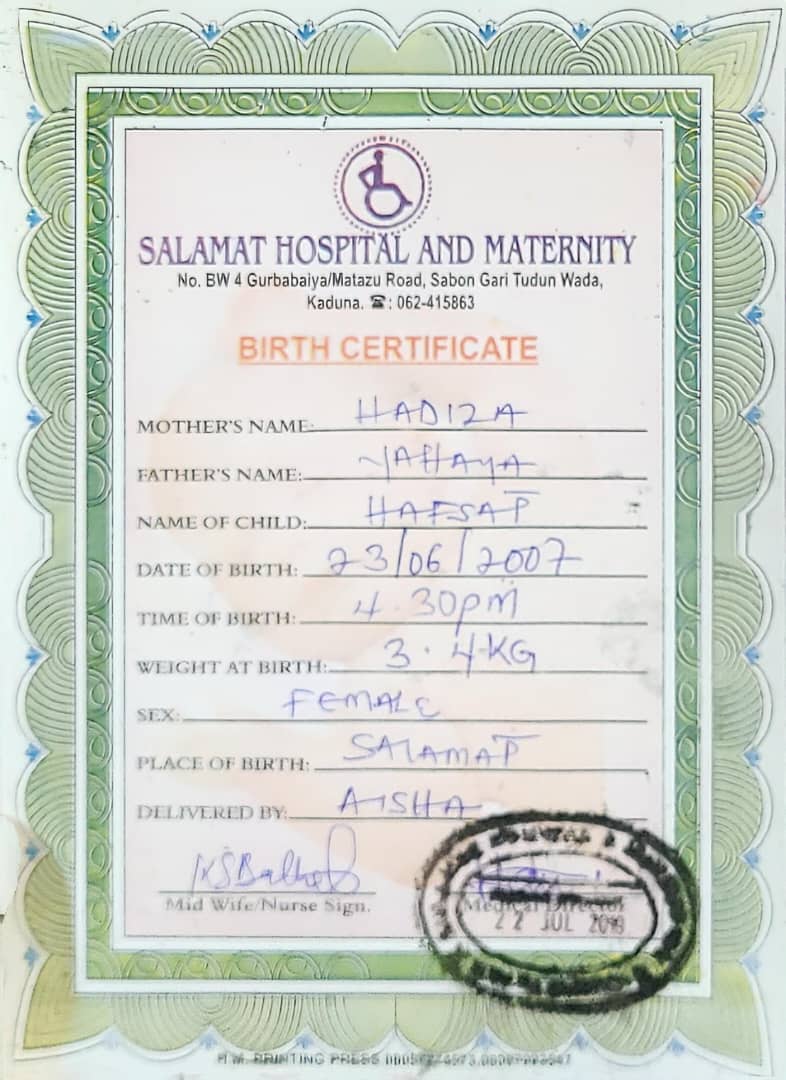 SALAMAT HOSPITAL AND MATERNITY
No. BW 4 Gurbabaiya/Matazu Road, Sabon Gari Tudun Wada,
Kaduna. ☎: 062-415863
BIRTH CERTIFICATE
MOTHER'S NAME: HADIZA
FATHER'S NAME: YAHAYA
NAME OF CHILD: HAFSAT
DATE OF BIRTH: 23/06/2007
TIME OF BIRTH: 4.30pm
WEIGHT AT BIRTH: 3.4KG
SEX: FEMALE
PLACE OF BIRTH: SALAMAT
DELIVERED BY: AISHA
Mid Wife/Nurse Sign. Medical Director
22 JUL
PRINTING PRESS